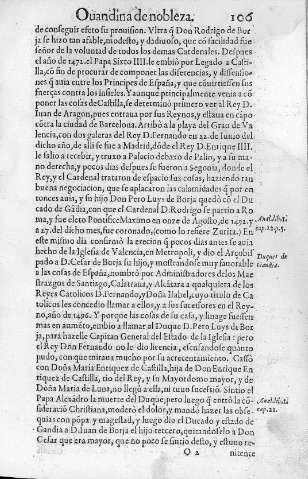 Ouandina de nobleza. 106
de conseguir efeto su prouision. Vltra q̃ Don Rodrigo de Bor
ja se hizo tan afable, modesto, y dadiuoso, que cõ facilidad fue
señor de la voluntad de todos los demas Cardenales. Despues
el año de 1472. el Papa Sixto IIII. le embió por Legado a Castil-
la, cõ fin de procurar de componer las diferencias, y dissensio-
nes q̃ auia entre los Principes de España, y que cõuirtiessen sus
fuerças contra los infieles. Y aunque principalmente venia a cõ
poner las cosas de Castilla, se determinó primero ver al Rey D.
Iuan de Aragon, pues entraua por sus Reynos, y estaua en cãpo
cõtra la ciudad de Barcelona. Arribò a la playa del Grao de Va-
lencia, con dos galeras del Rey D. Fernando en 22. de Iunio del
dicho año, de alli se fue a Madrid, dõde el Rey D. Enrique IIII.
le salio a recebir, y truxo a Palacio debaxo de Palio, y a su ma-
no derecha, y pocos dias despues se fueron a Segouia, donde el
Rey, y el Cardenal trataron de espacio sus cosas, haziendo tan
buena negociacion, que se aplacaron las calamidades q̃ por en-
tonces auia, y su hijo Don Pero Luys de Borja quedò cõ el Du
cado de Gãdia, con que el Cardenal D. Rodrigo se partio a Ro
ma, y fue electo Pontifice Maximo en onze de Agosto, de 1492. y
a 27. del dicho mes, fue coronado, (como lo refiere Zurita.) En
este mismo dia confirmó la erecion q̃ pocos dias antes se auia
hecho de la Iglesia de Valencia, en Metropoli, y dio el Arçobis
pado a D. Cesar de Borja su hijo, y mostrandose muy fauorable
a las cosas de España, nombró por Administradores de los Mae
strazgos de Santiago, Calatraua, y Alcãtara a qualquiera de los
Reyes Catolicos D. Fernando, y Doña Isabel, cuyo titulo de Ca
tolicos les concedio llamar a ello, y a sus sucessores en el Rey-
no, año de 1496. Y porque las cosas de su casa, y linage fuessẽ
mas en aumẽto, embio a llamar al Duque D. Pero Luys de Bor
ja, para hazelle Capitan General del Estado de la Iglesia: pero
el Rey Don Fernando no le dio licencia, escusandose quanto
pudo, con que miraua mucho por su acrecentamiento. Cassò
con Doña Maria Enriquez de Castilla, hija de Don Enrique En
riquez de Castilla, tio del Rey, y su Mayordomo mayor, y de
Doña Maria de Luna, no llegò a ella, ni tuuo sucessiõ. Sintio el
Papa Alexãdro la muerte del Duque, pero luego q̃ entrò la cõ-
sideraciõ Christiana, moderò el dolor, y mandò hazer las obse-
quias con põpa y magestad, y luego dio el Ducado y estado de
Gandia a D. Iuan de Borja el hijo tercero, quitandoselo a Don
Cesar que era mayor, que no poco se sintio desto, y estuuo re-
O 2 nitente
Duques de
Gandia.
cap. 22.